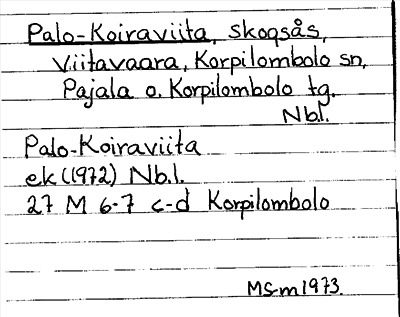 Palo-Koiraviita, skogsås,
Viitavaara, Korpilombolo sn,
Pajala o. Korpilombolo tg.
Nbl.
Palo-Koiraviita
ek (1972) Nb.l.
27 M 6-7 c-d Korpilombolo
MS-m 1973.